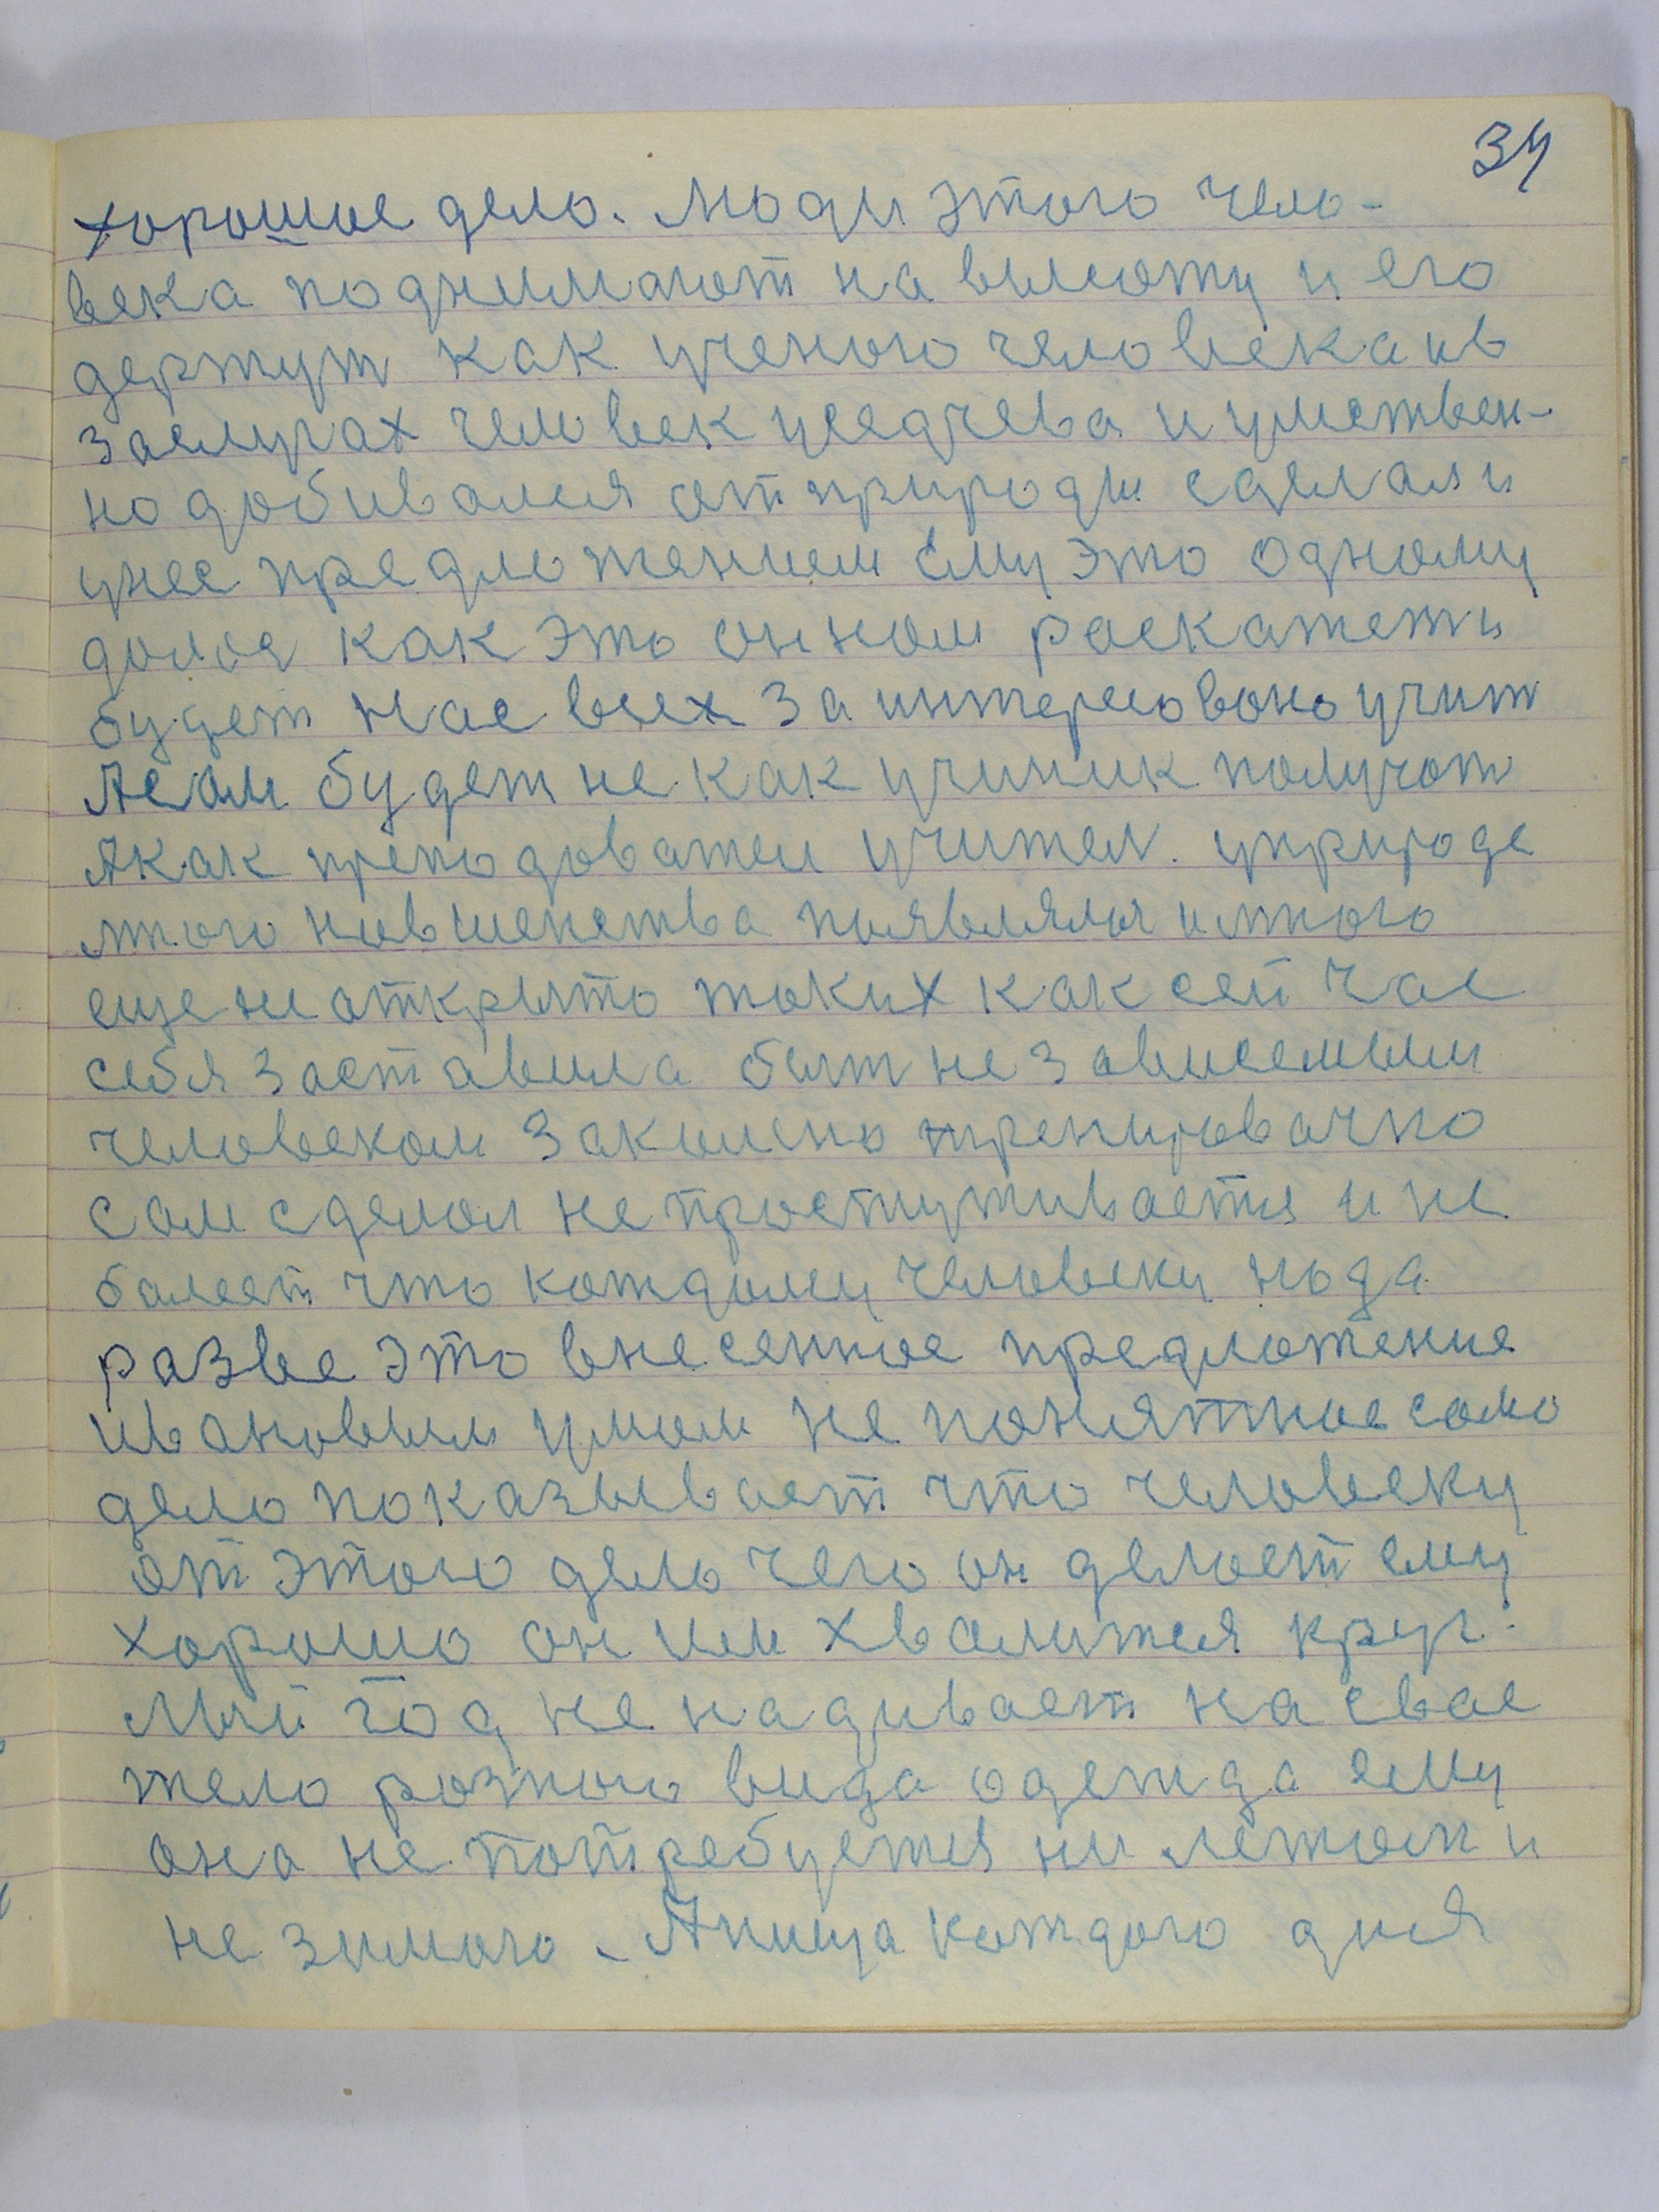 34
хорошое дело. Люди этого чело-
века поднимают на высоту и его
держут как ученого человека ив
заслугах человек уседчева и умствен-
но добивался от природы сделался
унее предложением ему это одному
дался как это он нам раскажет и
будет нас всех заинтересовоно учит
Асам будет не как учиник получат
Акак преподователи учител. уприроде
много новшенства появлялся имного
еще не открыто таких как сей час
себя заставила быт не зависемым
человеком закалено тренировачно
сам сделал не простуживается и не
балеет что кождому человеку нода
разве это внесенное предложение
ивановым умом не понятное само
дело показывает что человеку
от этого дело чего он делает ему
хорошо он им хвалится круг-
лый год не надивает на свае
тело розного вида одежда ему
она не потребуется ни летом и
не зимого. Апища каждого дня